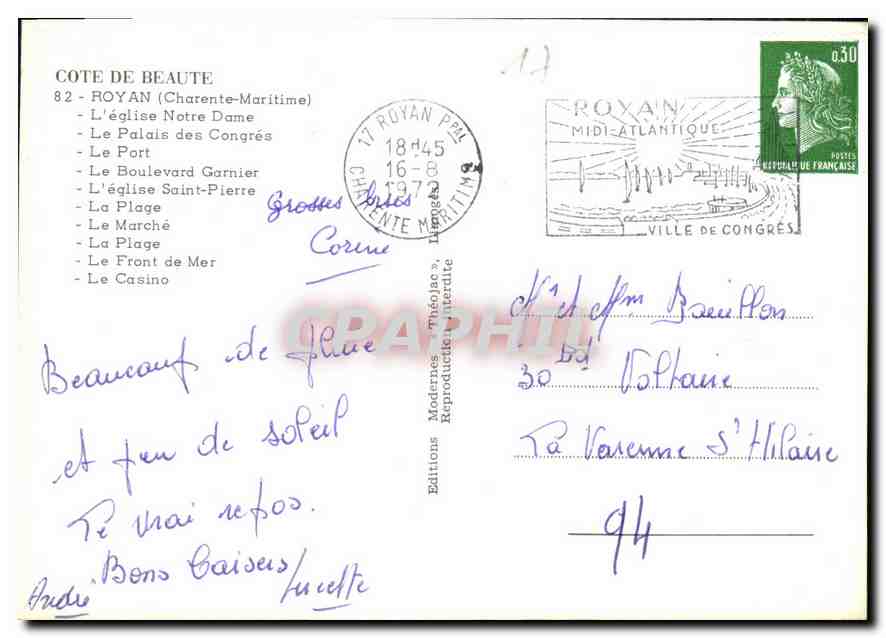 COTE DE BEAUTE
82 - ROYAN (Charente-Maritime)
- L'église Notre Dame
- Le Palais des Congrés
- Le Port
- Le Boulevard Garnier
- L'église Saint-Pierre
- La Plage
- Le Marché
- La Plage
- Le Front de Mer
- Le Casino
17
17 ROYAN PPAL
18H45
16-8
1972
CHARENTE MARITIME
ROYAN
MIDI-ATLANTIQUE
VILLE DE CONGRÈS
0,30
POSTES
REPUBLIQUE FRANÇAISE
Grosses bises
Corine
Beaucoup de pluie
et peu de soleil
Le vrai repos.
Bons baisers
André Lucette
Editions Modernes « Théojac », Limoges
Reproduction interdite
CPAPHIL
Mr et Mm Bouillon
30 Bd Voltaire
La Varenne St Hilaire
94